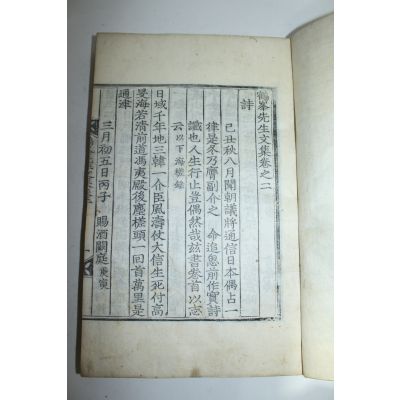 鶴峯先生文集卷之二
詩
己丑秋八月聞朝議將通信日本偶占一
律是冬乃膺副介之 命追思前作實詩
讖也人生行止豈偶然哉玆書卷首以志
云 以下海槎錄
日域千年地三韓一介臣風濤仗大信生死付高
旻海若清前道馮夷殿後塵槎頭一回首萬里是
通津
三月初五日丙子 賜酒闕庭 庚寅